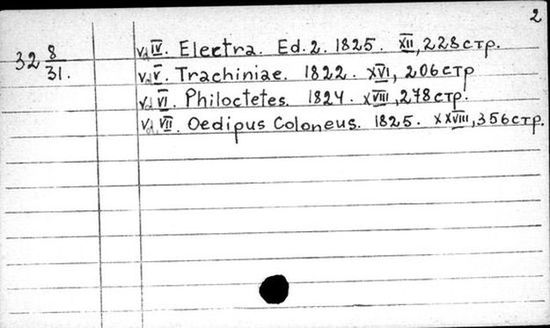 2
32 8/31. v. IV. Electra. Ed. 2. 1825. XII, 228 стр.
v. V. Trachiniae. 1822. XVI, 206 стр
v. VI. Philoctetes. 1824. XVIII, 278 стр.
v. VII. Oedipus Coloneus. 1825. XXVIII, 356 стр.